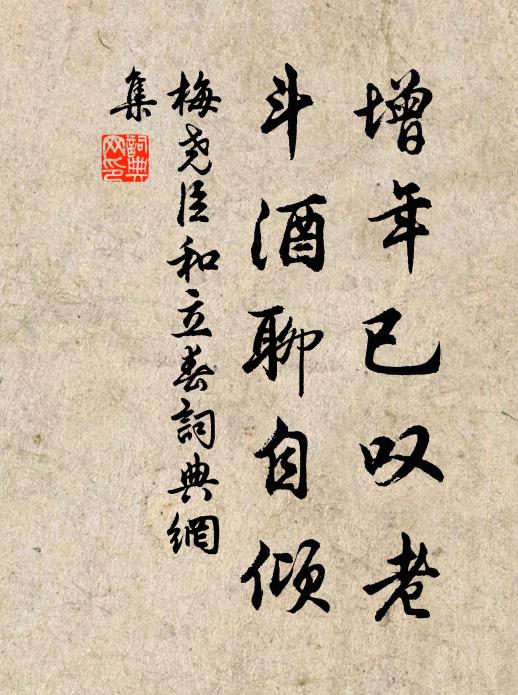 增年已叹老
斗酒聊自倾
梅尧臣和立春詞典網
集
詞典
网